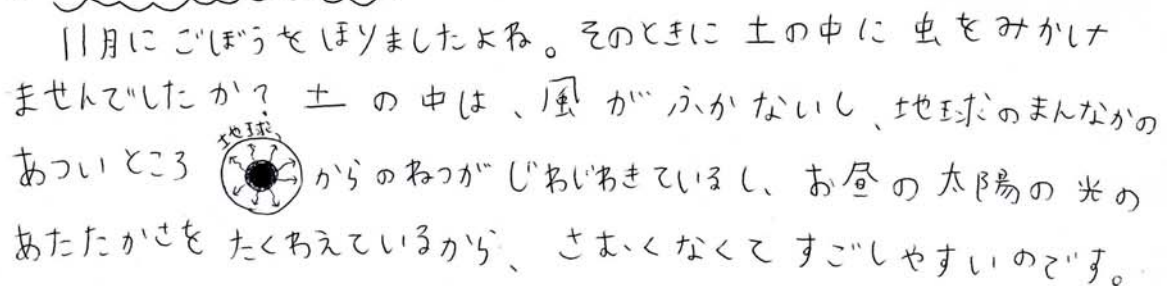 11月に ごぼうを ほりましたよね。そのときに 土の中に 虫を みかけ
ませんでしたか? 土の中は、風が ふかないし、地球のまんなかの
地球
あついところ からのねつが じわじわきているし、お昼の太陽の光の
あたたかさを たくわえているから、さむくなくて すごしやすいのです。